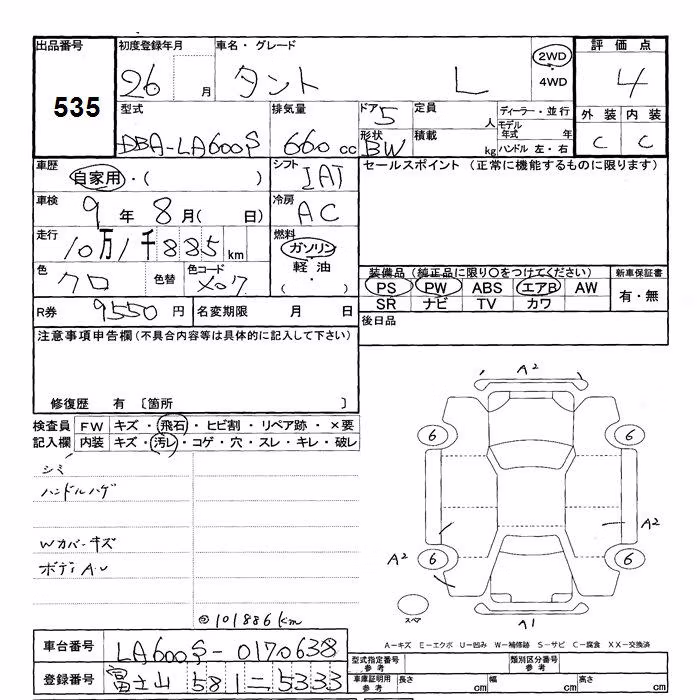 出品番号 初度登録年月 車名・グレード 評価点
535 26 月 タント L 2WD 4WD 4
外装 内装
C C
型式 排気量 ドア 定員 ディーラー・並行
DBA-LA600S 660 cc 5 人 モデル年式 年
形状 積載 ハンドル 左・右
BW kg
車歴 シフト セールスポイント (正常に機能するものに限ります)
自家用・( ) IAT
車検 冷房
9 年 8 月( 日) AC
走行 燃料
10万1千885 km ガソリン
軽油
・( )
色 色替 色コード
クロ X07
装備品 (純正品に限り○をつけてください) 新車保証書
PS PW ABS エアB AW 有・無
SR ナビ TV カワ
R券 9550 円 名変期限 月 日 後日品
注意事項申告欄(不具合内容等は具体的に記入して下さい)
修復歴 有 〔箇所 〕
検査員 FW キズ・飛石・ヒビ割・リペア跡・×要
記入欄 内装 キズ・汚レ・コゲ・穴・スレ・キレ・破レ
シミ
ハンドルハゲ
Wカバーキズ
ボディA.U
101886km
A2
6 6
A2
A2
6 6
スペア
A1
A-キズ E-エクボ U-凹み W-補修跡 S-サビ C-腐食 XX-交換済
車台番号 LA600S-0170638
登録番号 富士山 581 ニ 5333
型式指定番号 参考 類別区分番号 参考
車庫証明用 参考 長さ cm 幅 cm 高さ cm